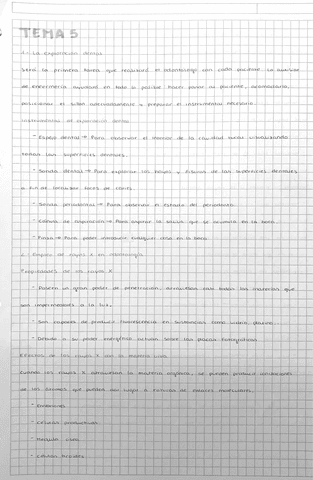 TEMA 5
1.- La exploración dental
Será la primera tarea que realizará el odontólogo con cada paciente. La auxiliar
de enfermería ayudará en todo lo posible: hacer pasar al paciente, acomodarlo,
posicionar el sillón adecuadamente y preparar el instrumental necesario.
Instrumental de exploración dental
- Espejo dental → Para observar el interior de la cavidad bucal visualizando
todas las superficies dentales.
- Sonda dental → Para explorar las fosas y fisuras de las superficies dentales
a fin de localizar focos de caries.
- Sonda periodontal → Para observar el estado del periodonto.
- Cánula de aspiración → Para aspirar la saliva que se acumula en la boca.
- Pinza → Para poder introducir cualquier cosa en la boca.
2.- Empleo de rayos X en odontología
Propiedades de los rayos X
- Poseen un gran poder de penetración, atraviesan casi todas las materias que
son impermeables a la luz.
- Son capaces de producir fluorescencia en sustancias como vidrio, platino...
- Debido a su poder energético actúan sobre las placas fotográficas
Efectos de los rayos X en la materia viva
Cuando los rayos X atraviesan la materia orgánica, se pueden producir
de los átomos que pueden dar lugar a roturas de enlaces moleculares.
- Embriones
- Células productivas
- Médula ósea
- Células